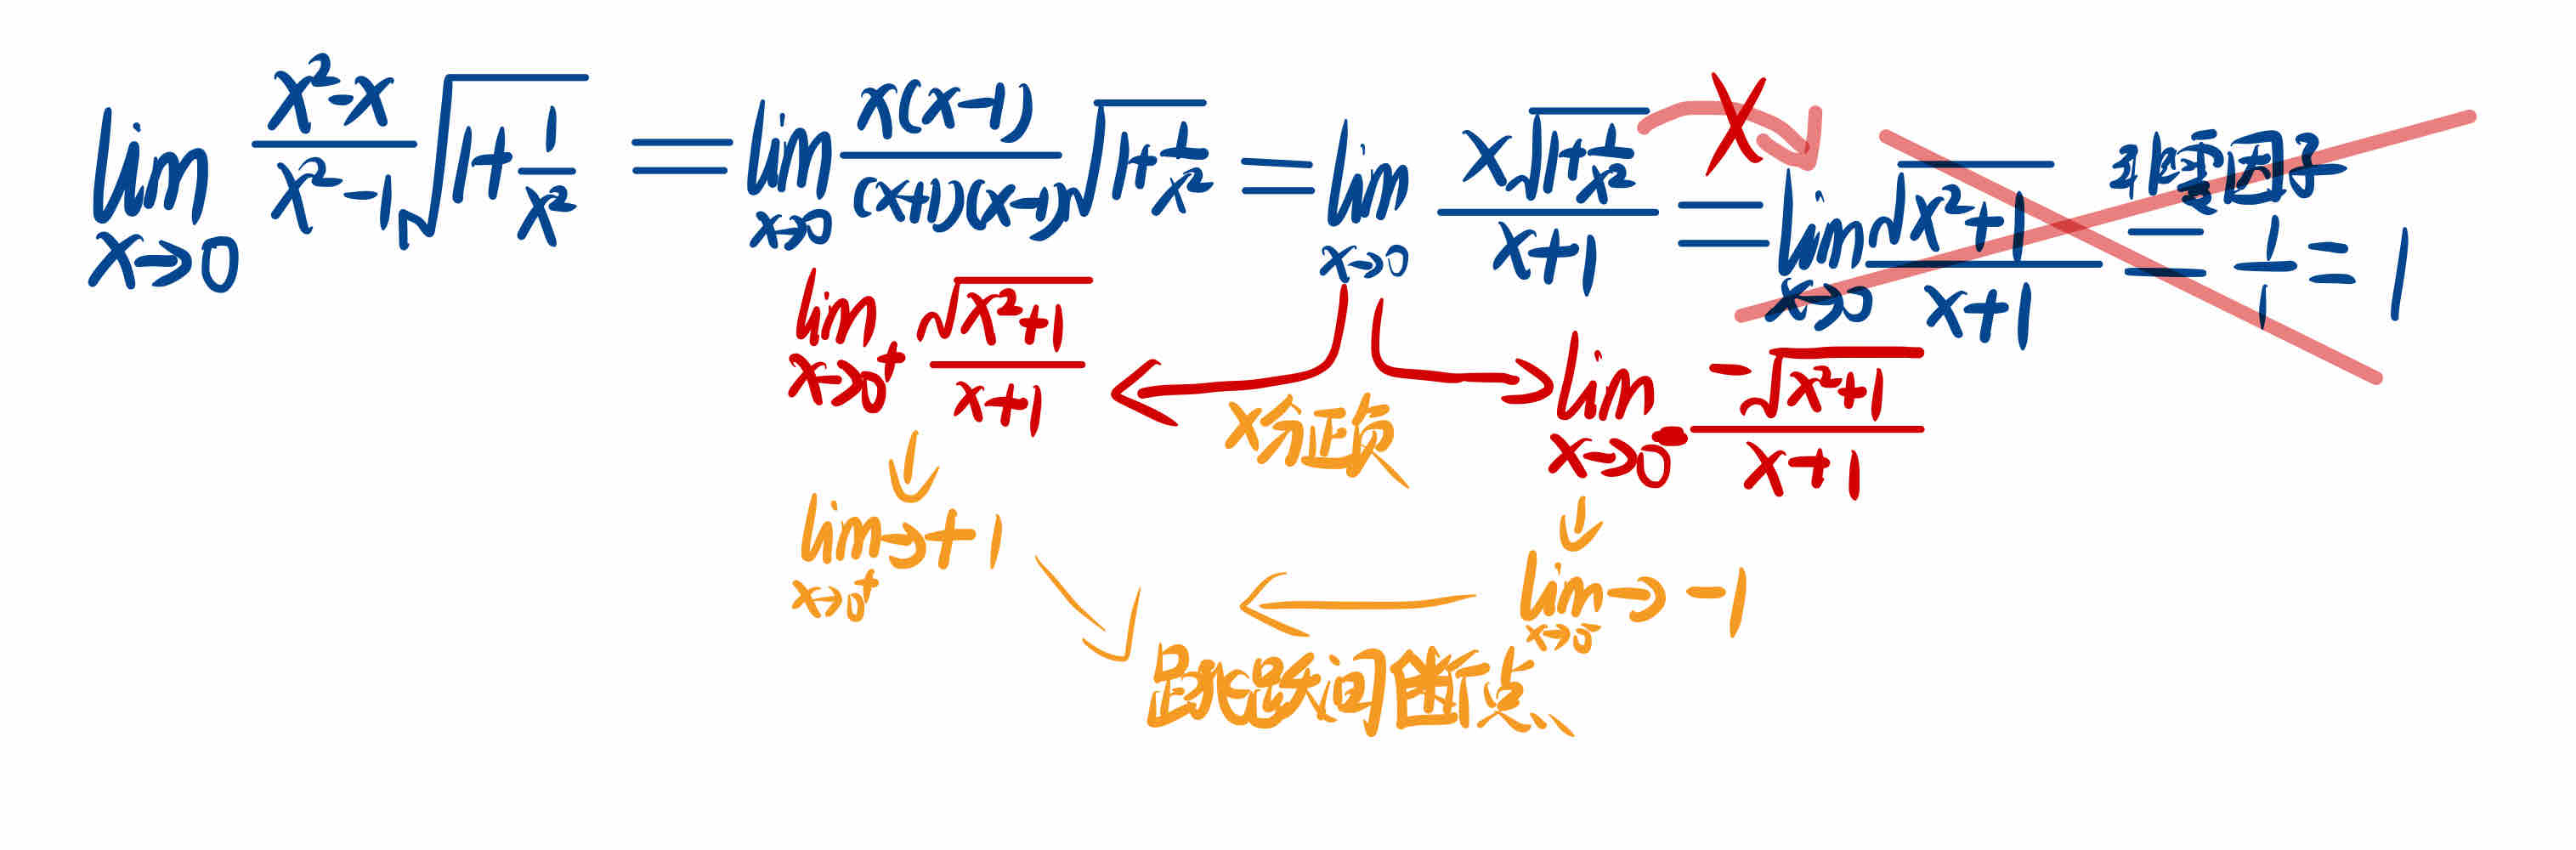 lim x→0 (x²-x)/(x²-1) √(1+1/x²) = lim x→0 x(x-1)/((x+1)(x-1)) √(1+1/x²) = lim x→0 x√(1+1/x²)/(x+1) = lim x→0 √(x²+1)/(x+1) 非零因子 = 1/1 = 1
X
lim x→0⁺ √(x²+1)/(x+1)
lim x→0⁻ -√(x²+1)/(x+1)
x分正负
lim x→0⁺ → +1
lim x→0⁻ → -1
跳跃间断点